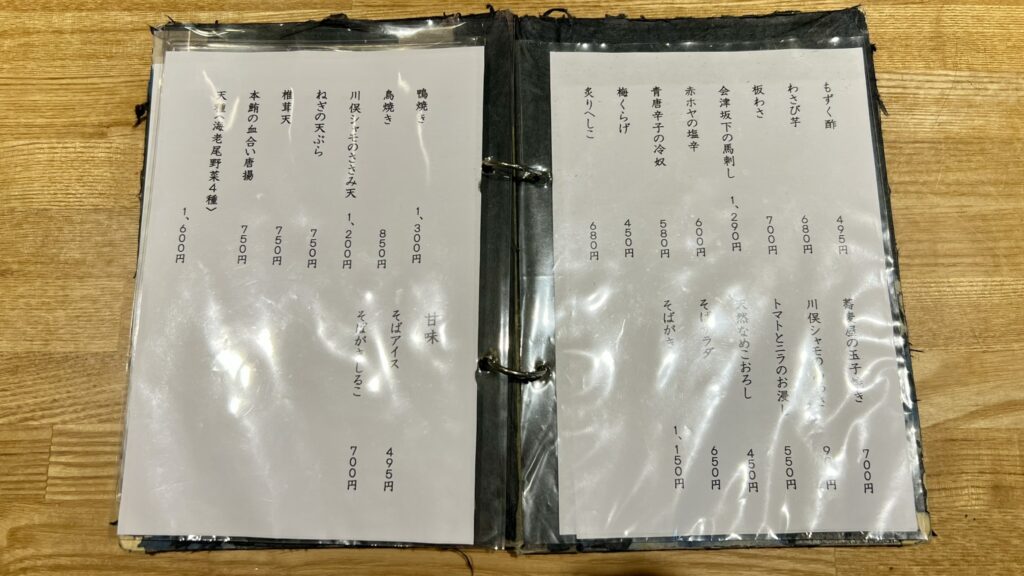 もずく酢 495円
わさび芋 680円
板わさ 700円
会津坂下の馬刺し 1,290円
赤ホヤの塩辛 600円
青唐辛子の冷奴 580円
梅くらげ 450円
炙りへしこ 680円
屋の玉子 700円
川俣シャモの
トマトとニラのお浸し 550円
天然なめこおろし 450円
650円
そばがき 1,150円
鴨焼き 1,300円
鳥焼き 850円
川俣シャモのささみ天 1,200円
ねぎの天ぷら 750円
椎茸天 750円
本鮪の血合い唐揚 750円
天種〈海老尾野菜4種〉 1,600円
甘味
そばアイス 495円
そばがきしるこ 700円